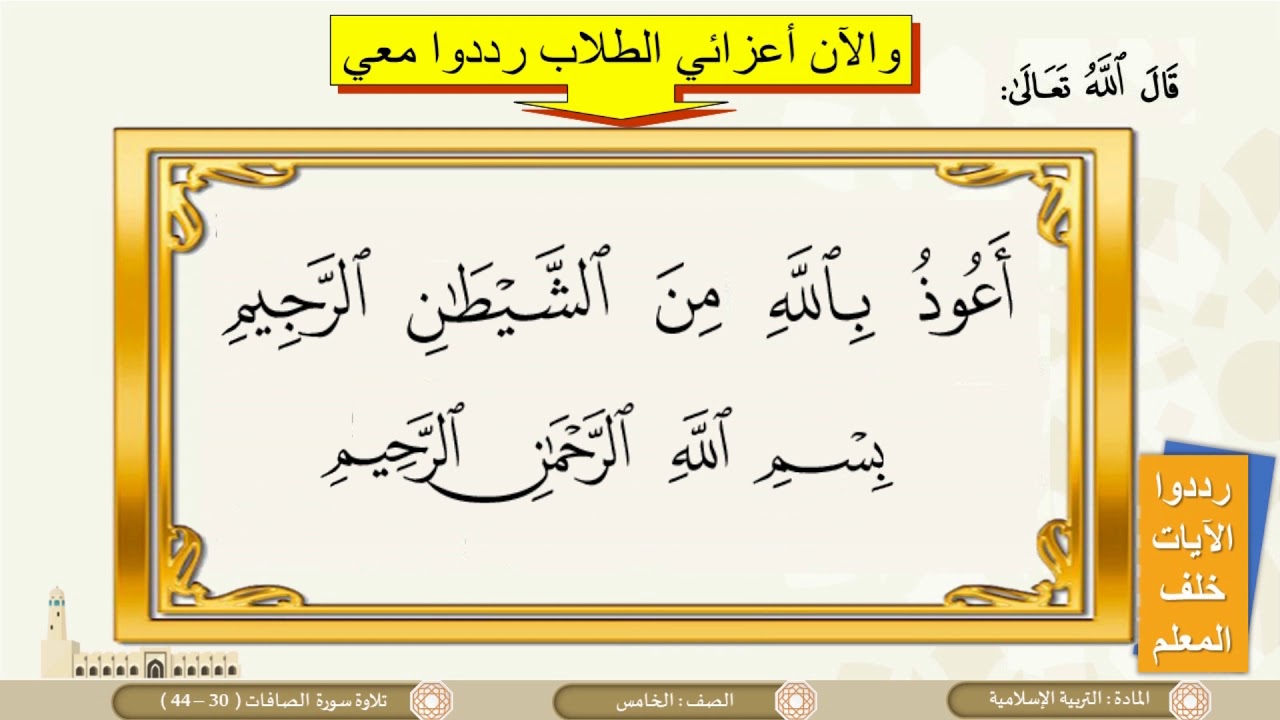 والآن أعزائي الطلاب رددوا معي
قَالَ ٱللَّهُ تَعَالَىٰ:
أَعُوذُ بِٱللَّهِ مِنَ ٱلشَّيْطَٰنِ ٱلرَّجِيمِ
بِسْمِ ٱللَّهِ ٱلرَّحْمَٰنِ ٱلرَّحِيمِ
رددوا
الآيات
خلف
المعلم
المادة : التربية الإسلامية
الصف : الخامس
تلاوة سورة الصافات ( 30 – 44 )